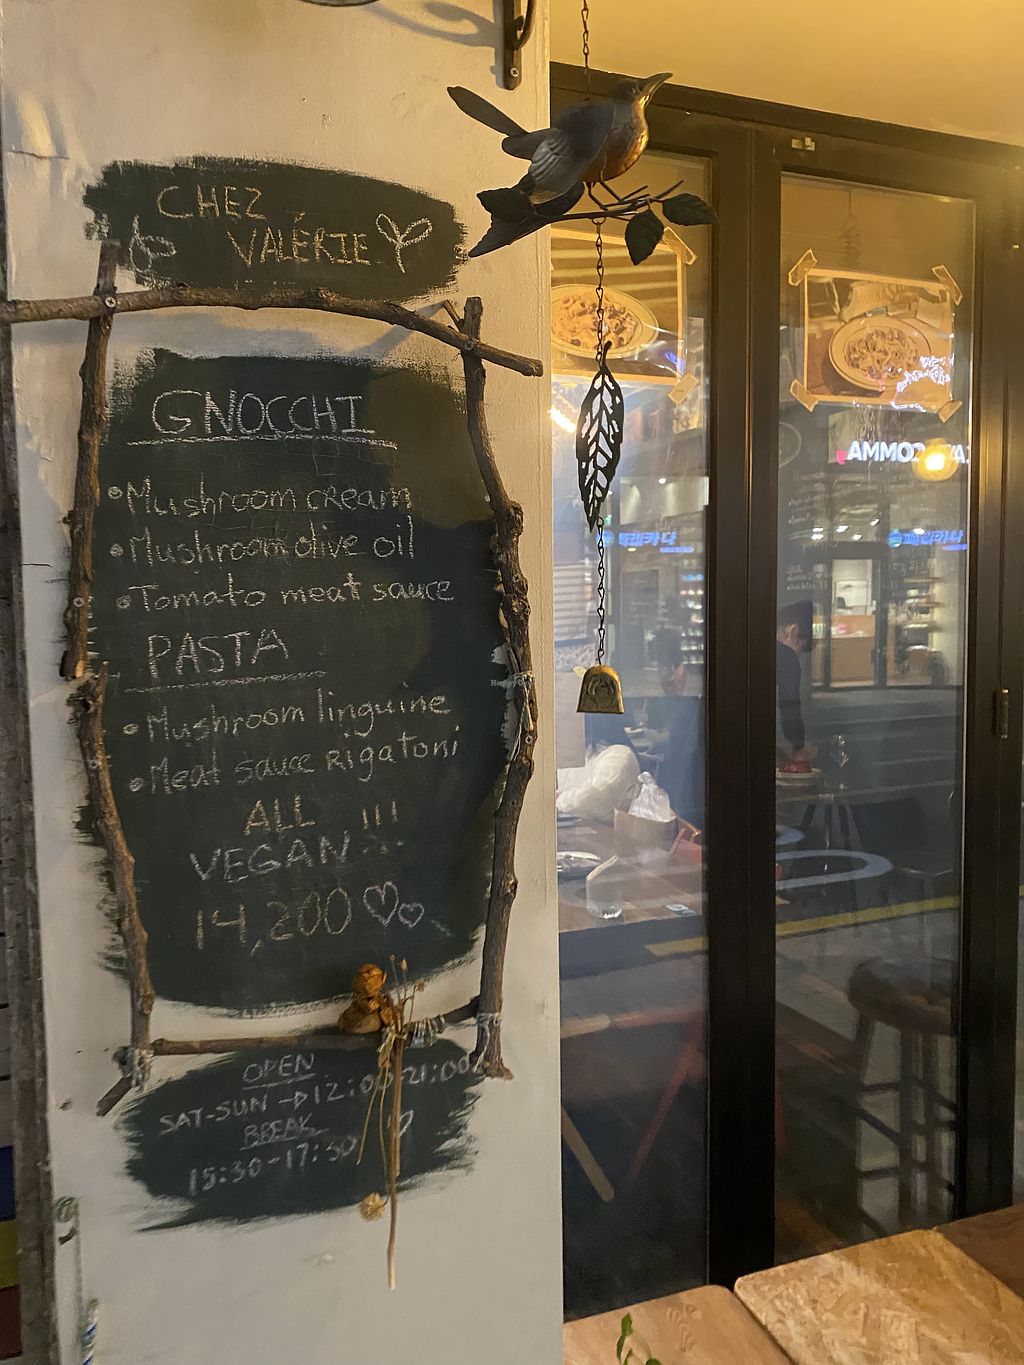 CHEZ
VALÉRIE
GNOCCHI
• Mushroom cream
• Mushroom olive oil
• Tomato meat sauce
PASTA
• Mushroom linguine
• Meat sauce Rigatoni
ALL
VEGAN !!!
14,200
OPEN
SAT-SUN → 12:00-21:00
BREAK
15:30-17:30